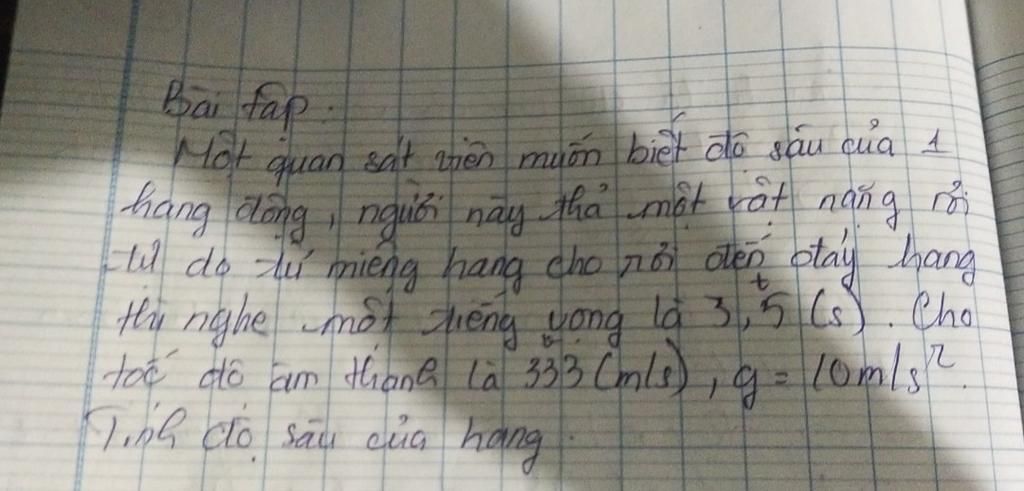 Bài tập.
Một quan sát viên muốn biết độ sâu của 1
hang động, người này thả một vật nặng rơi
tự do từ miệng hang cho rơi đến đáy hang
thì nghe một tiếng vọng là 3,5 (s). Cho
t
tốc độ âm thanh là 333 (m/s), g = 10m/s²
Tính độ sâu của hang.